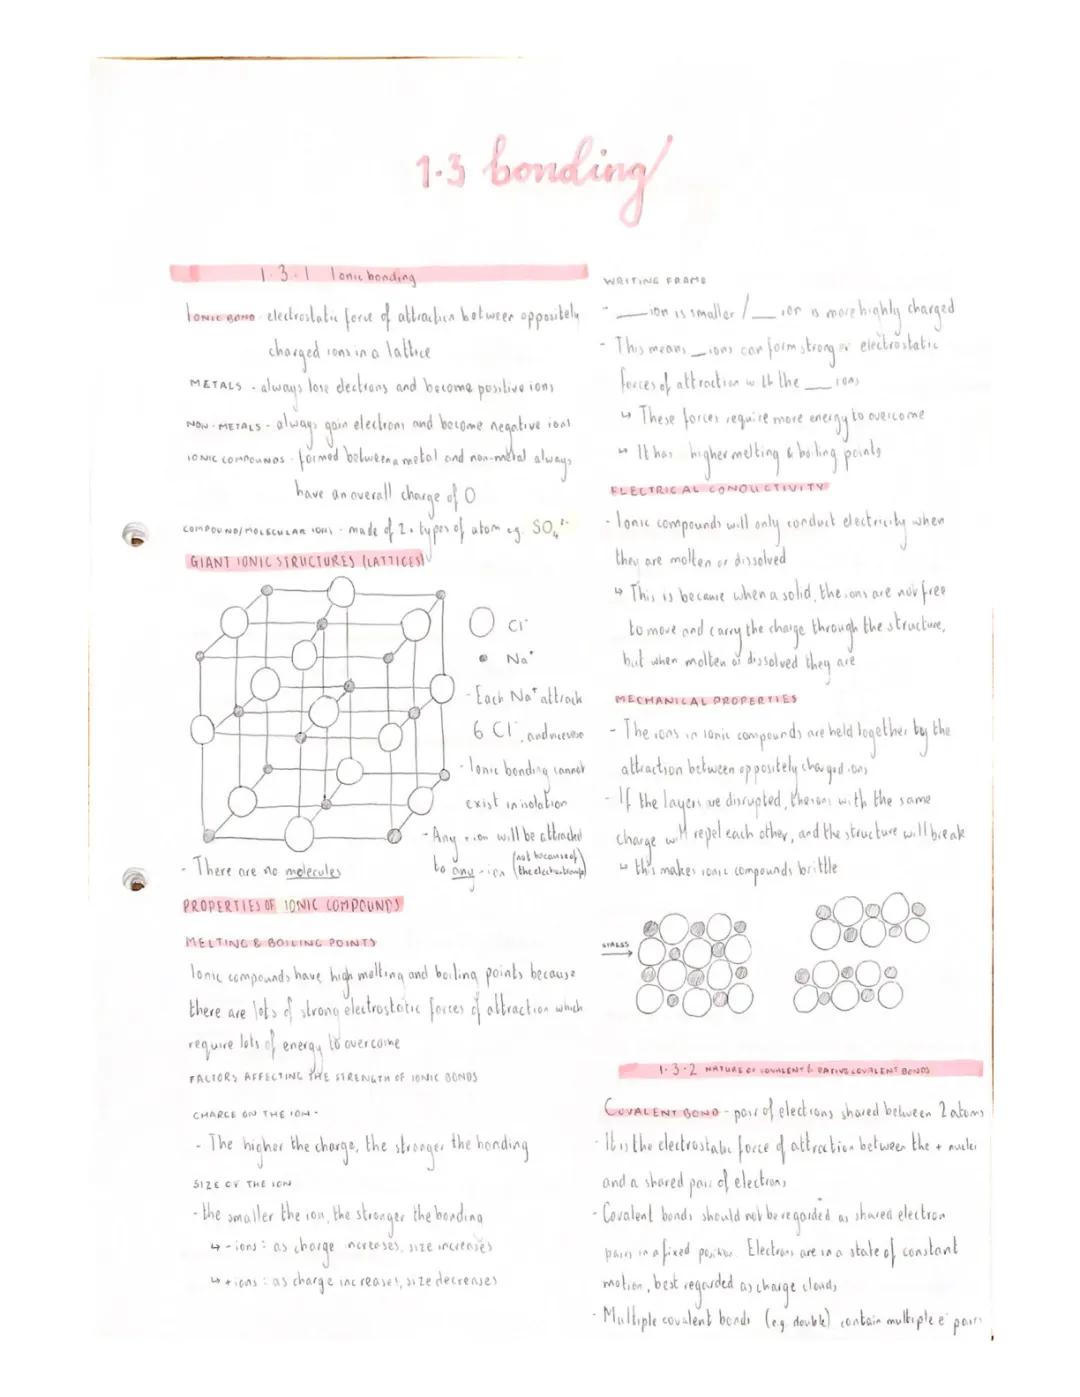 1.3 bonding
1.3.1 Ionic bonding
IONIC BOND - electrostatic force of attraction between oppositely
charged ions in a lattice
METALS - always lose electrons and become positive ions
NON-METALS - always gain electrons and become negative ions
IONIC COMPOUNDS - formed between a metal and non-metal always
have an overall charge of 0
COMPOUND/MOLECULAR IONS - made of 2+ types of atom eg. SO₄²⁻
GIANT IONIC STRUCTURES (LATTICES)
Cl⁻
Na⁺
- Each Na⁺ attracts
6 Cl⁻, and
- Ionic bonding cannot
exist in isolation
- Any + ion will be attracted
to any - ion (not because of
the electron transfer)
- There are no molecules
PROPERTIES OF IONIC COMPOUNDS
MELTING & BOILING POINTS
Ionic compounds have high melting and boiling points because
there are lots of strong electrostatic forces of attraction which
require lots of energy to overcome
FACTORS AFFECTING THE STRENGTH OF IONIC BONDS
CHARGE ON THE ION -
- The higher the charge, the stronger the bonding
SIZE OF THE ION
- the smaller the ion, the stronger the bonding
↳ - ions : as charge increases, size increases
↳ + ions : as charge increases, size decreases
WRITING FRAME
- __ ion is smaller / __ ion is more highly charged
- This means __ ions can form stronger electrostatic
forces of attraction with the __ ions
↳ These forces require more energy to overcome
↳ It has higher melting & boiling points
ELECTRICAL CONDUCTIVITY
- Ionic compounds will only conduct electricity when
they are molten or dissolved
↳ This is because when a solid, the ions are not free
to move and carry the charge through the structure,
but when molten or dissolved they are
MECHANICAL PROPERTIES
- The ions in ionic compounds are held together by the
attraction between oppositely charged ions
- If the layers are disrupted, the ions with the same
charge will repel each other, and the structure will break
↳ this makes ionic compounds brittle
STRESS
1.3.2 NATURE OF COVALENT & DATIVE COVALENT BONDS
COVALENT BOND - pair of electrons shared between 2 atoms
- It is the electrostatic force of attraction between the + nuclei
and a shared pair of electrons
- Covalent bonds should not be regarded as shared electron
pairs in a fixed position. Electrons are in a state of constant
motion, best regarded as charge clouds
- Multiple covalent bonds (e.g. double) contain multiple e⁻ pairs